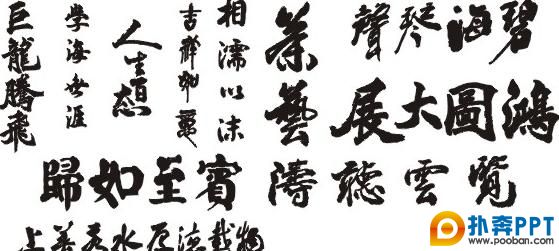 巨龍騰飛
學海無涯
人生百態
吉祥如意
相濡以沫
茶藝
碧海琴聲
鴻圖大展
覽雲聽濤
賓至如歸
上善若水 厚德載物
扑奔PPT
www.pooban.com